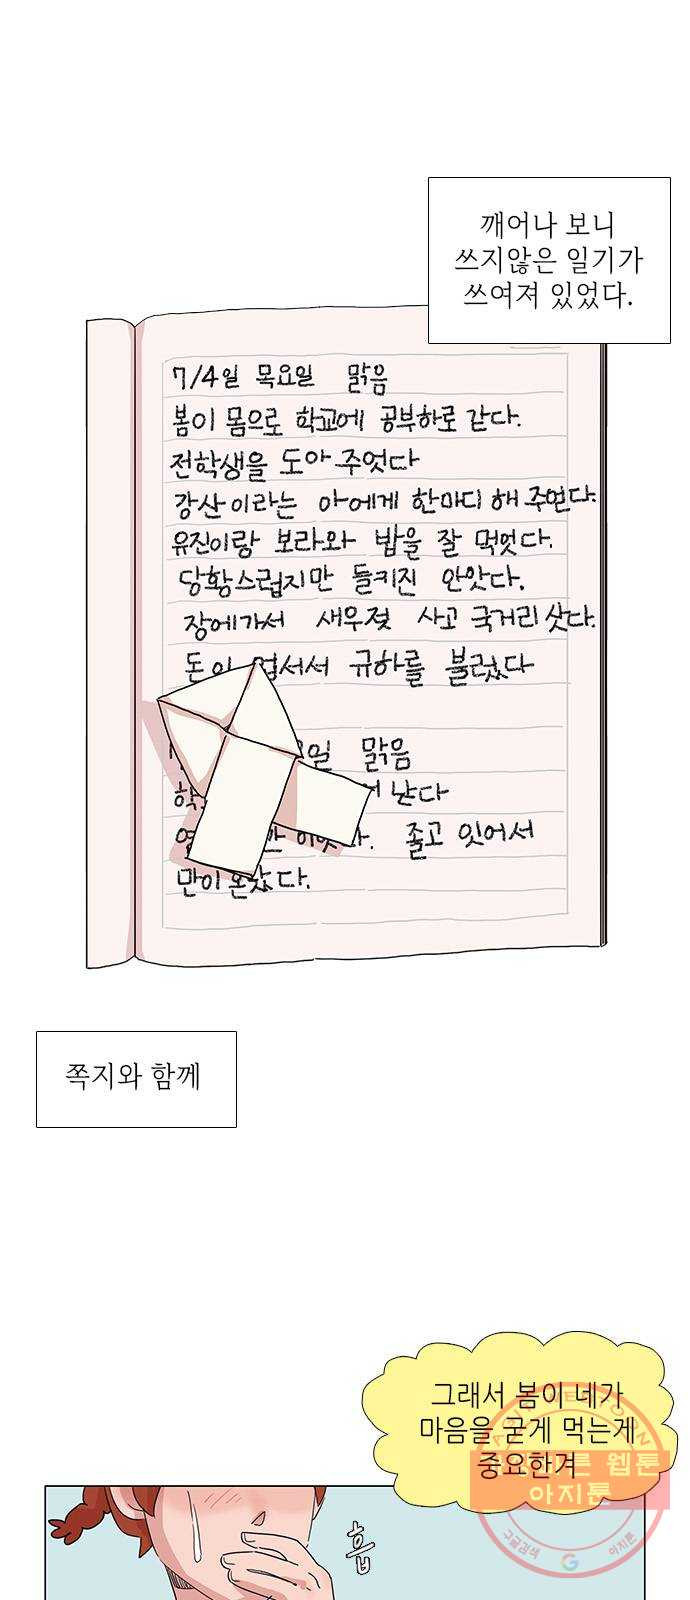 깨어나 보니
쓰지않은 일기가
쓰여져 있었다.
7/4일 목요일 맑음
봄이 몸으로 학교에 공부하로 간다.
전학생을 도아 주엇다
강산이라는 아에게 한마디 해 주언다.
유진이랑 보라와 밥을 잘 먹엇다.
당황스럽지만 들키진 안앗다.
장에가서 새우젖 사고 국거리 삿다.
돈이 업서서 규하를 불럿다
맑음
난다
졸고 잇어서
만이 온갔다.
쪽지와 함께
그래서 봄이 네가
마음을 굳게 먹는게
중요한겨
흡
웹툰
아지툰
구글검색
G
아지툰